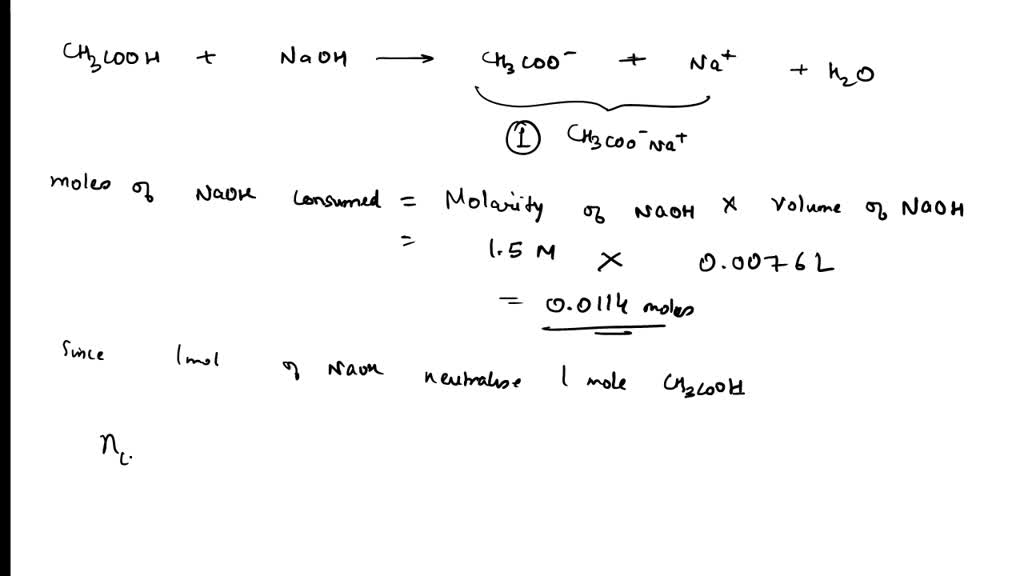 CH3COOH + NaOH ⟶ CH3COO⁻ + Na⁺ + H2O
① CH3COO⁻Na⁺
moles of NaOH consumed = Molarity of NaOH × Volume of NaOH
= 1.5 M × 0.0076 L
= 0.0114 moles
Since 1mol of NaOH neutralise 1 mole CH3COOH
n